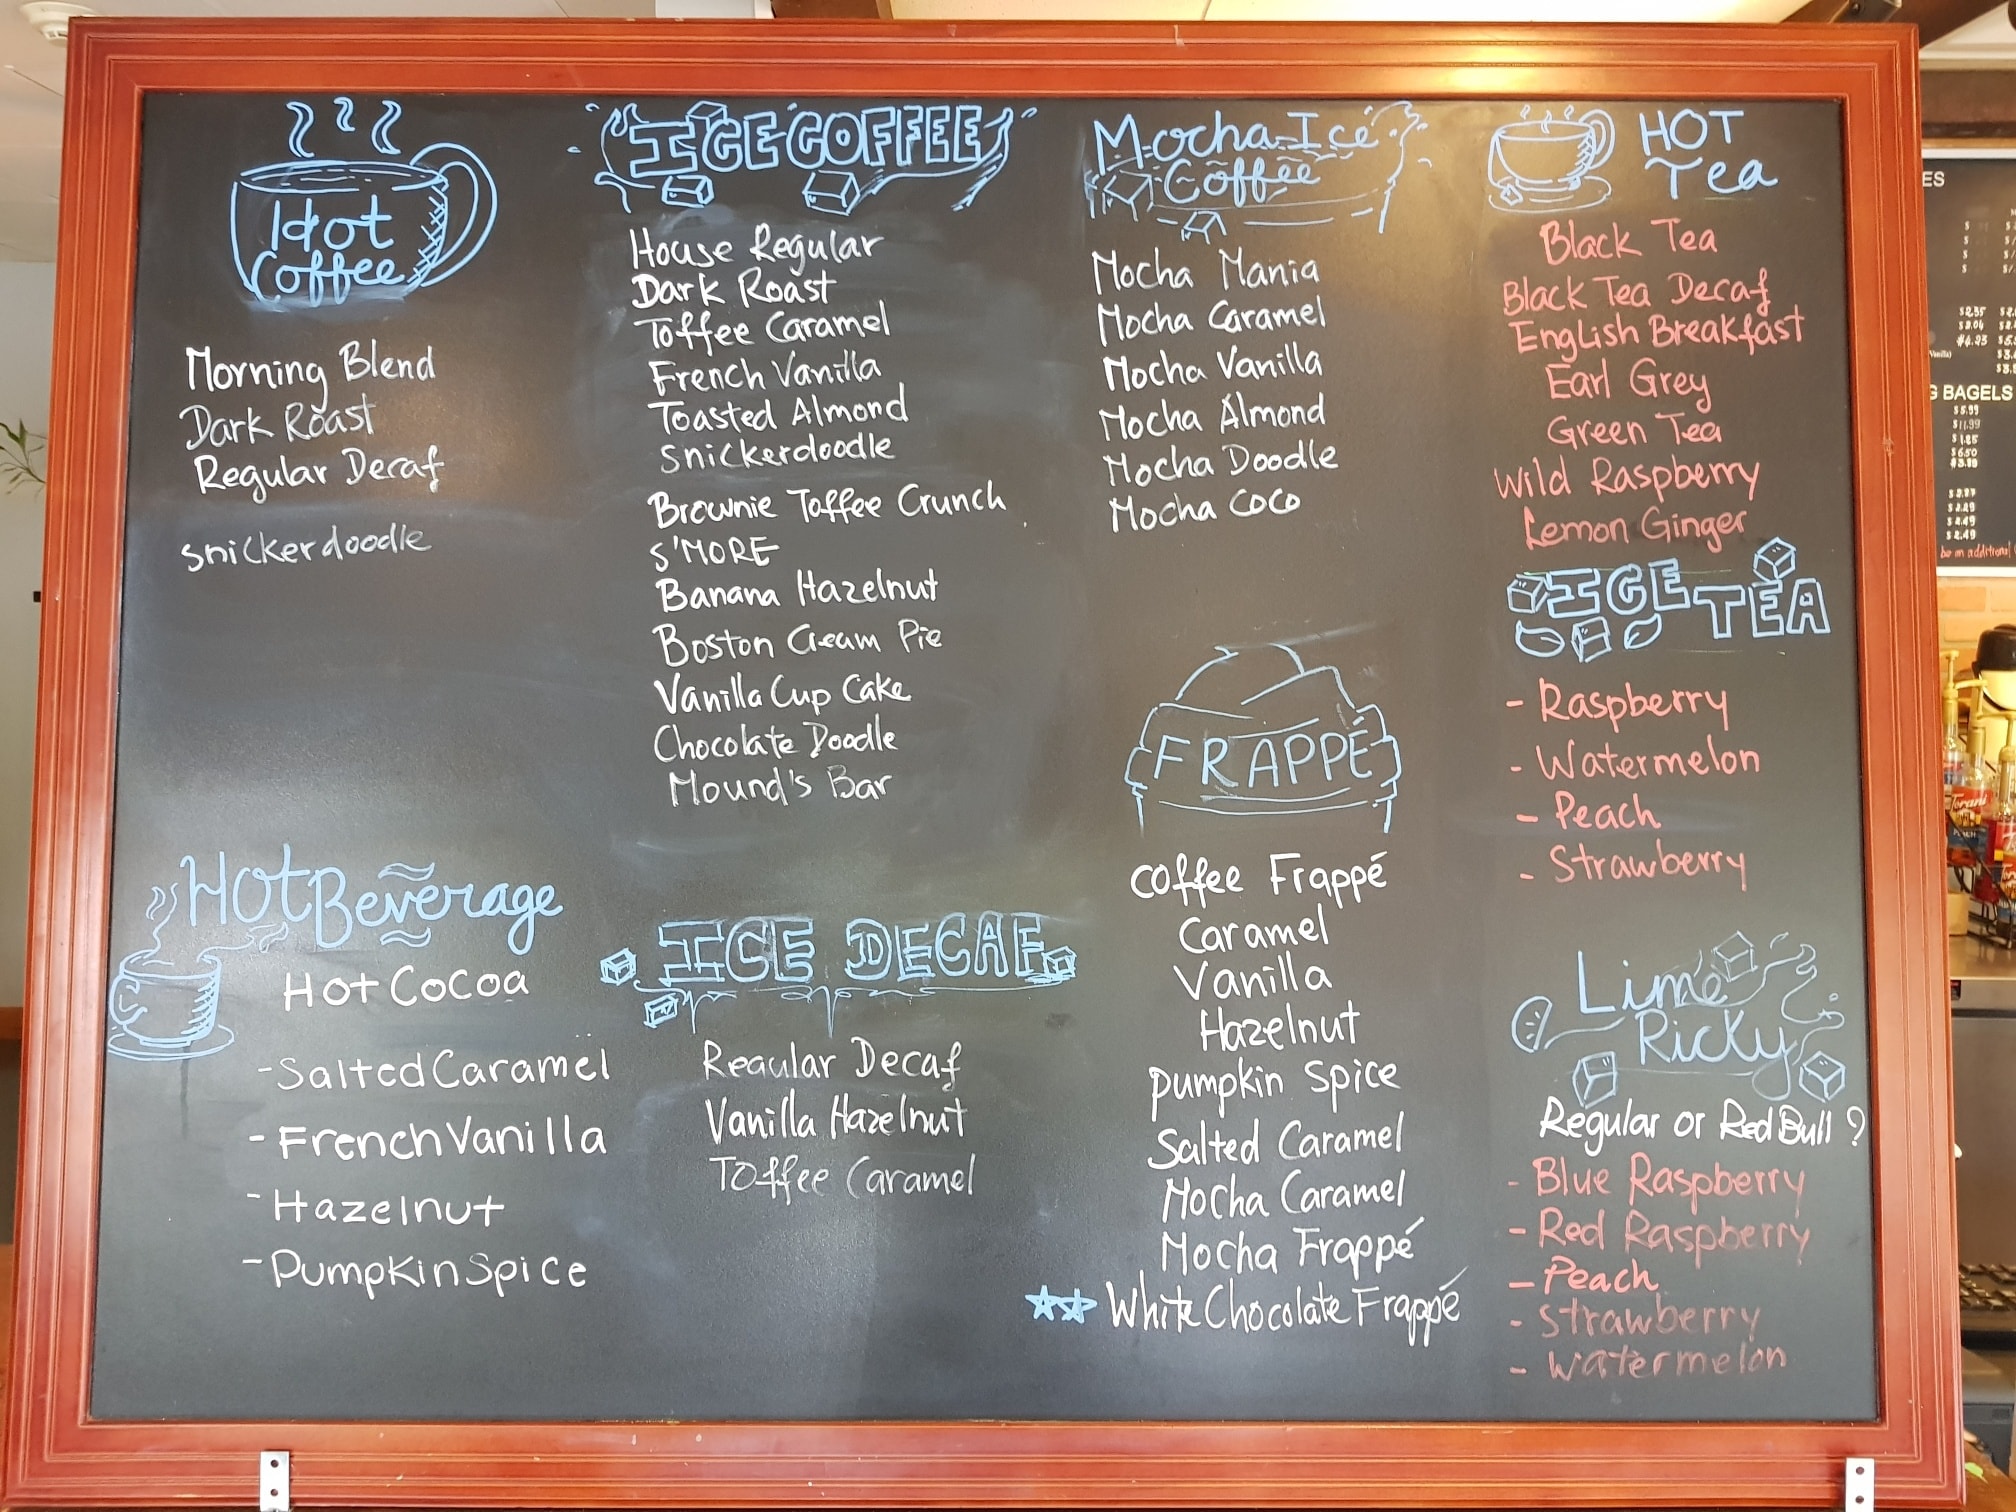 Hot
Coffee
Morning Blend
Dark Roast
Regular Decaf
snickerdoodle
HOT Beverage
HOT COCOA
- Salted Caramel
- French Vanilla
- Hazelnut
- Pumpkin Spice
ICE COFFEE
House Regular
Dark Roast
Toffee Caramel
French Vanilla
Toasted Almond
snickerdoodle
Brownie Toffee Crunch
S'MORE
Banana Hazelnut
Boston Cream Pie
Vanilla Cup Cake
Chocolate Doodle
Mound's Bar
ICE DECAF
Regular Decaf
Vanilla Hazelnut
Toffee Caramel
Mocha Ice
Coffee
Mocha Mania
Mocha Caramel
Mocha Vanilla
Mocha Almond
Mocha Doodle
Mocha COCO
FRAPPÉ
Coffee Frappé
Caramel
Vanilla
Hazelnut
Pumpkin Spice
Salted Caramel
Mocha Caramel
Mocha Frappé
White Chocolate Frappé
HOT
Tea
Black Tea
Black Tea Decaf
English Breakfast
Earl Grey
Green Tea
Wild Raspberry
Lemon Ginger
ICE TEA
- Raspberry
- Watermelon
- Peach
- Strawberry
Lime
Ricky
Regular or Red Bull ?
- Blue Raspberry
- Red Raspberry
- Peach
- Strawberry
- Watermelon
BAGELS